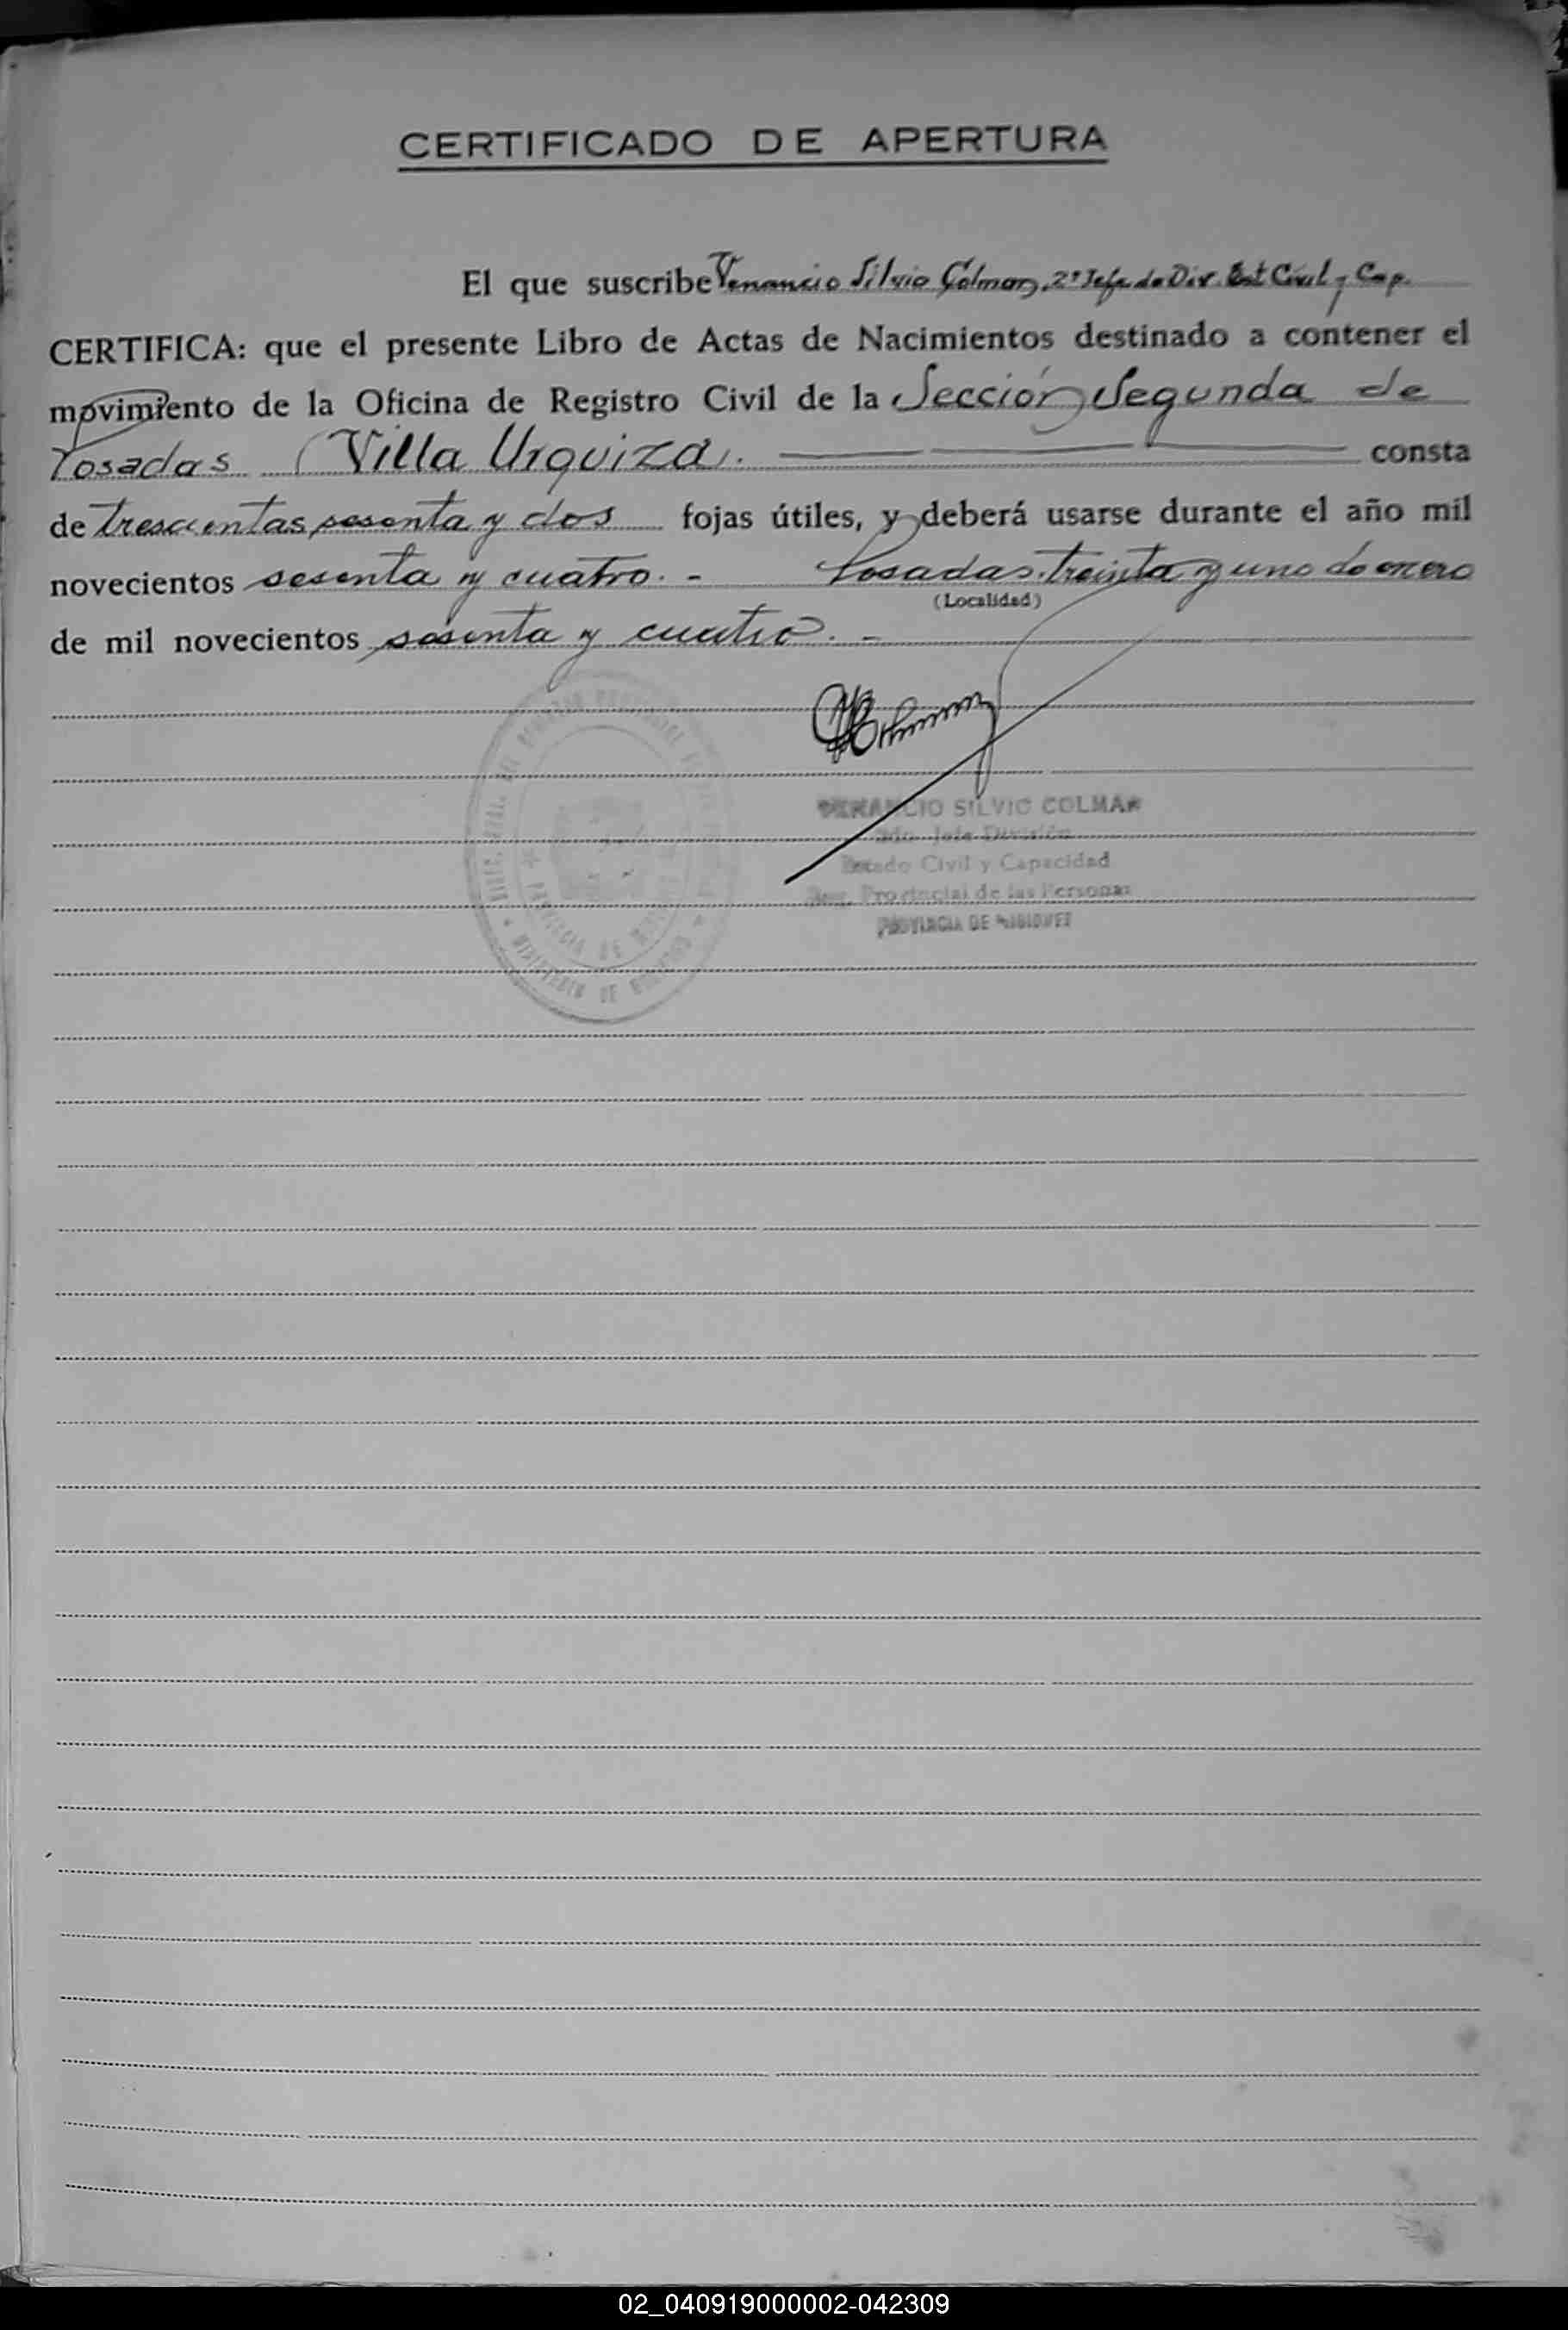 CERTIFICADO DE APERTURA
El que suscribe Venancio Silvio Colman, 2º Jefe de Div. Est. Civil y Cap.
CERTIFICA: que el presente Libro de Actas de Nacimientos destinado a contener el
movimiento de la Oficina de Registro Civil de la Sección Segunda de
Posadas (Villa Urquiza. consta
de trescientas sesenta y dos fojas útiles, y deberá usarse durante el año mil
novecientos sesenta y cuatro. - Posadas, treinta y uno de enero
(Localidad)
de mil novecientos sesenta y cuatro. -
VENANCIO SILVIO COLMAN
2do. Jefe División
Estado Civil y Capacidad
Reg. Provincial de las Personas
PROVINCIA DE MISIONES
PROVINCIA DE
MINISTERIO DE
02_040919000002-042309